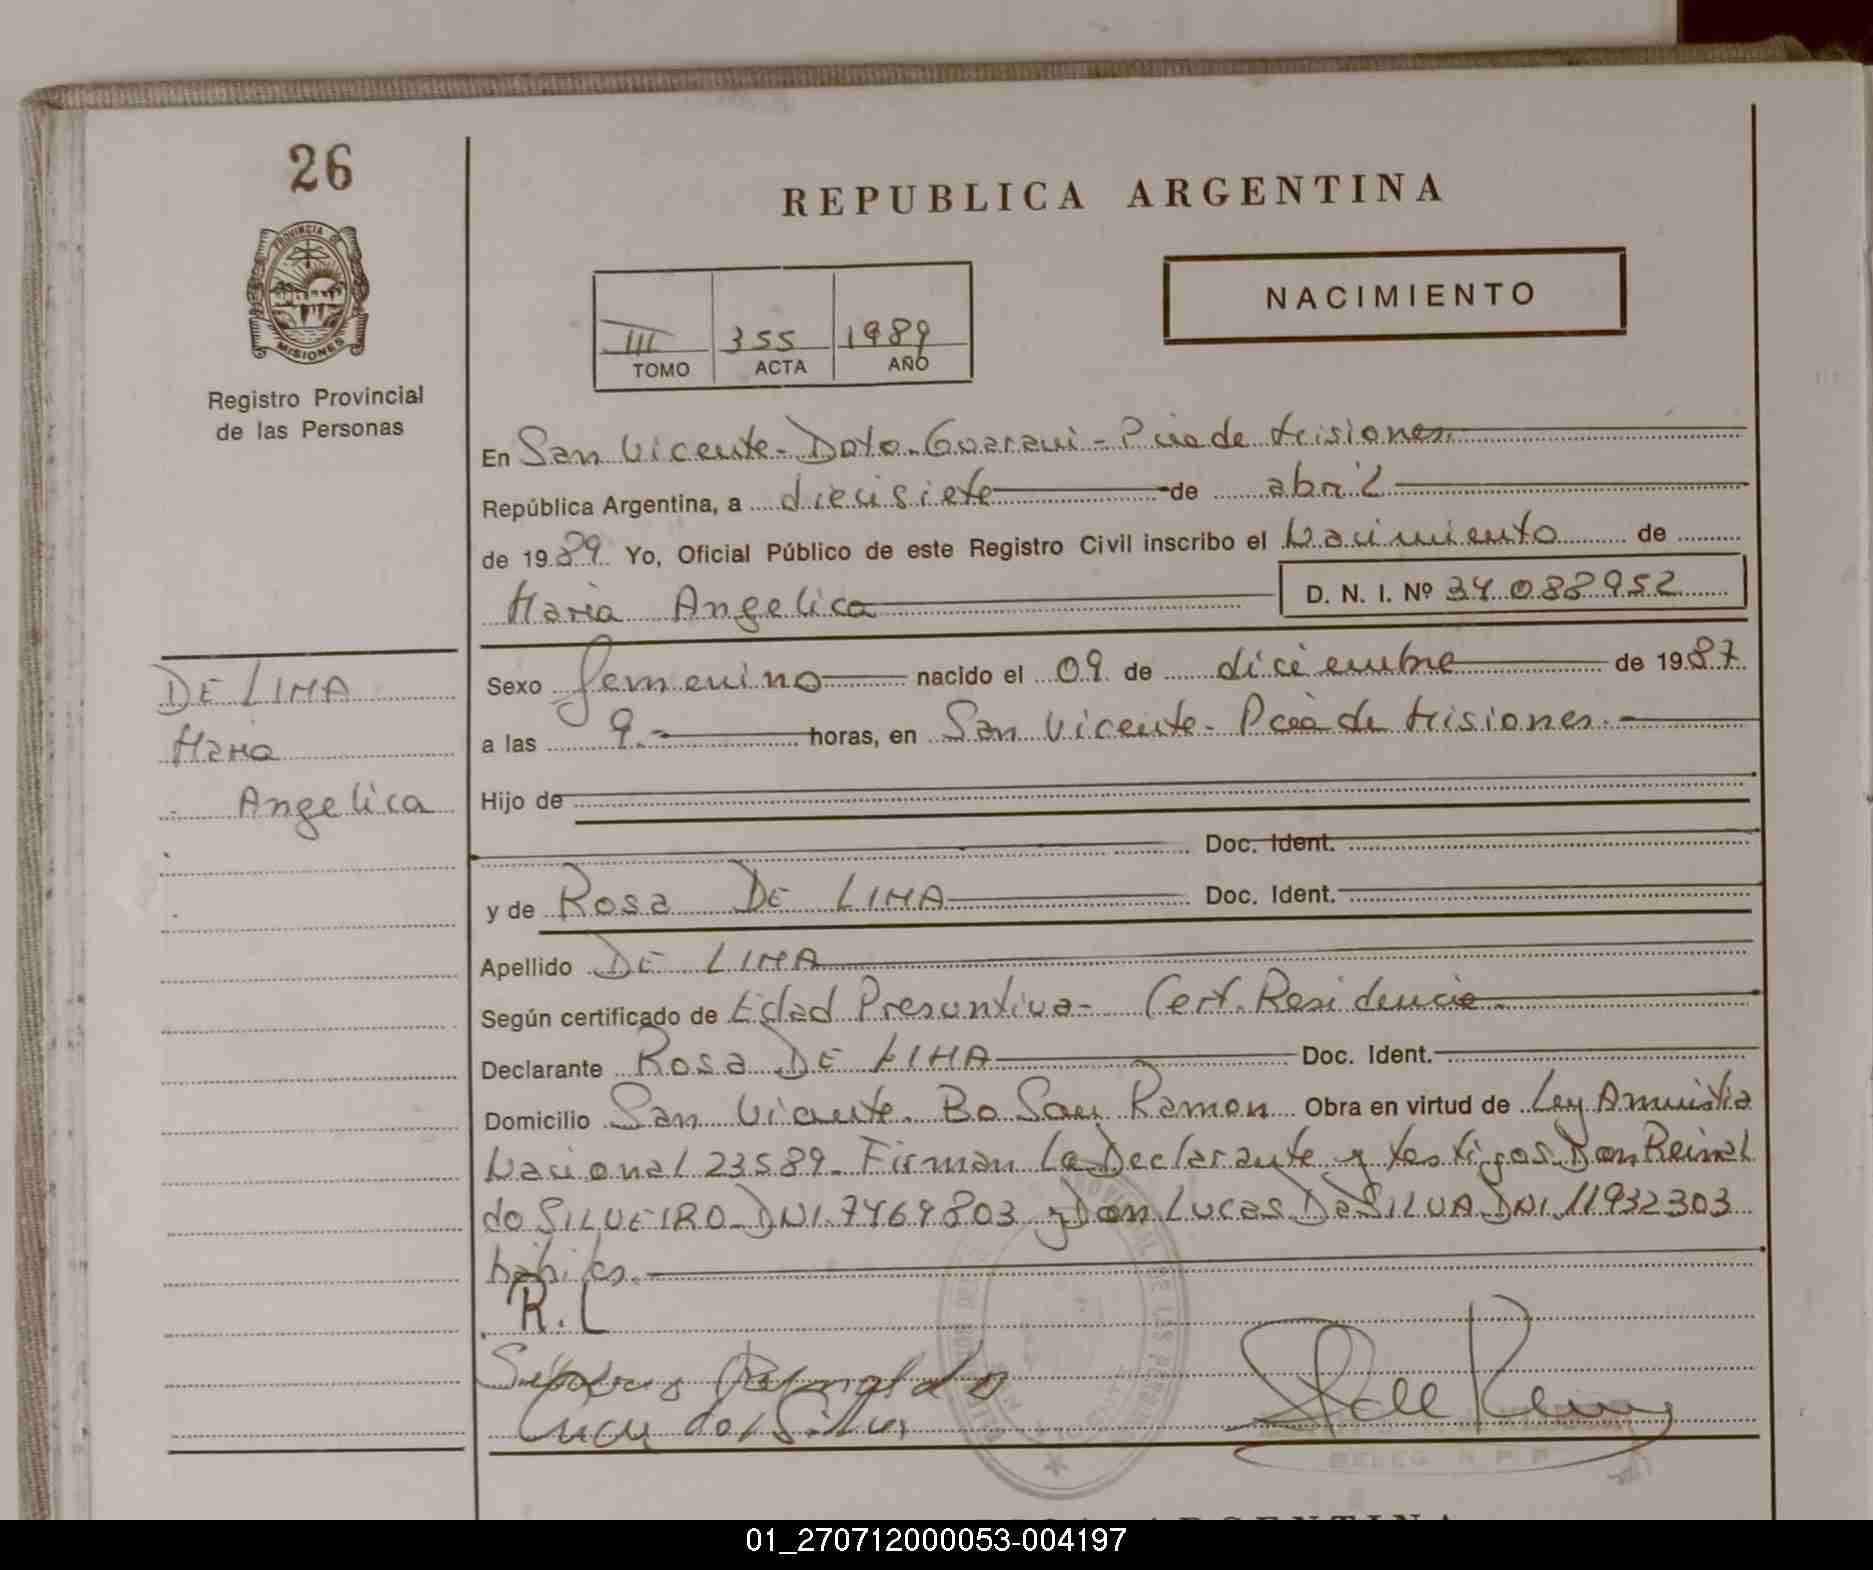 26
REPUBLICA ARGENTINA
PROVINCIA DE
MISIONES
Registro Provincial
de las Personas
NACIMIENTO
III 355 1989
TOMO ACTA AÑO
En San Vicente - Dpto. Guarani - Pcia de Misiones
República Argentina, a diecisiete de abril
de 1989 Yo, Oficial Público de este Registro Civil inscribo el Nacimiento de
Maria Angelica D. N. I. Nº 34 088 952
DE LIMA
Maria
Angelica
Sexo femenino nacido el 09 de diciembre de 1987
a las 9.- horas, en San Vicente - Pcia de Misiones.-
Hijo de
Doc. Ident.
y de Rosa DE LIMA Doc. Ident.
Apellido DE LIMA
Según certificado de Edad Presuntiva - Cert. Residencia
Declarante Rosa DE LIMA Doc. Ident.
Domicilio San Vicente. Bo San Ramon Obra en virtud de Ley Amnistia
Nacional 23589. Firman la Declarante y testigos Don Reinal
do SILVEIRO DNI. 7469803 y Don Lucas Da SILVA DNI. 11932303
habiles.
R. L
BELEG. R P P
REPUBLICA ARGENTINA
01_270712000053-004197